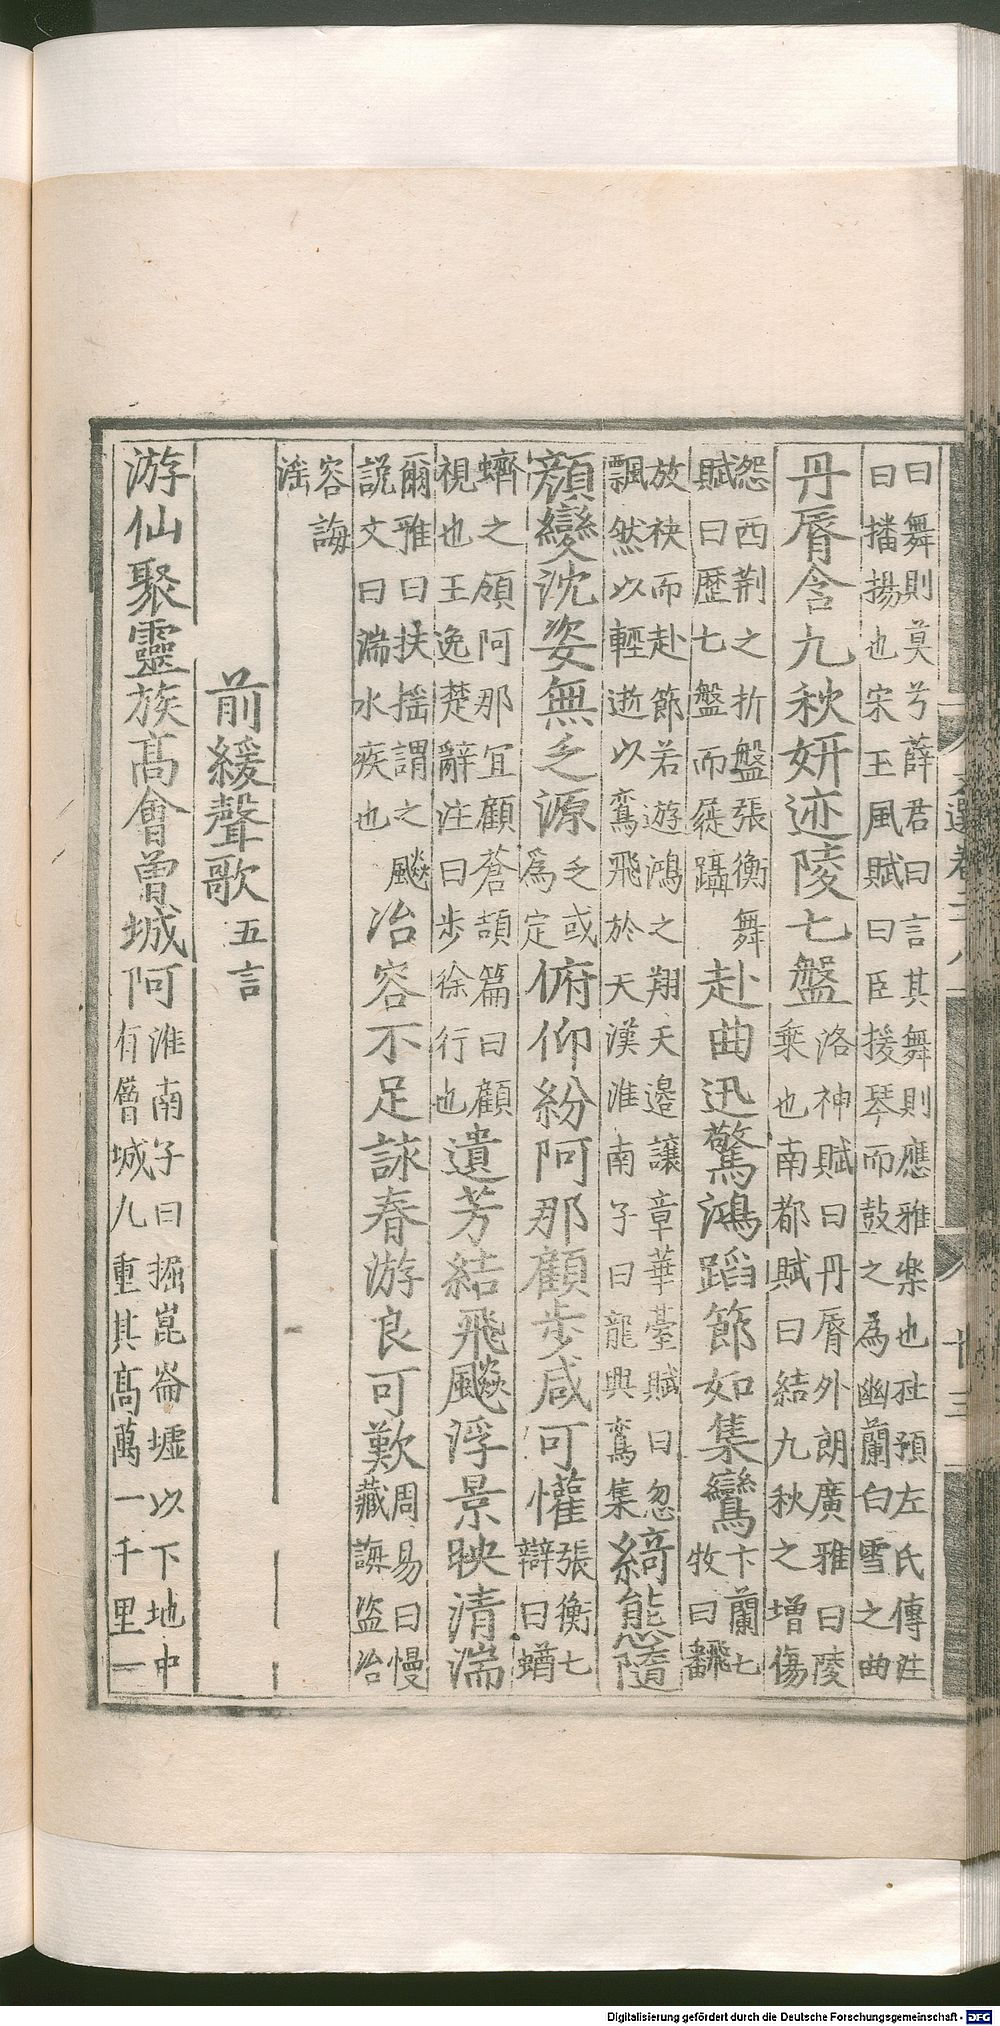 曰舞則莫兮薛君曰言其舞則應雅樂也杜預左氏傳注
曰播揚也宋玉風賦曰臣援琴而鼓之為幽蘭白雪之曲
丹脣含九秋妍迹陵七盤
洛神賦曰丹脣外朗廣雅曰陵
乘也南都賦曰結九秋之增傷
怨西荆之折盤張衡舞
賦曰歷七盤而屣躡
赴曲迅驚鴻蹈節如集鸞
卞蘭七
牧曰翻
放袂而赴節若游鴻之翔天邉讓章華臺賦曰忽
飄然以輕逝以鸞飛於天漢淮南子曰龍興鸞集
綺態隨
顏變沈姿無乏源
乏或
為定
俯仰紛阿那顧步咸可懽
張衡七
辯曰蝤
蠐之領阿那宜顧蒼頡篇曰顧
視也王逸楚辭注曰步徐行也
遺芳結飛飈浮景映清湍
爾雅曰扶揺謂之飈
説文曰湍水疾也
冶容不足詠春游良可歎
周易曰慢
藏誨盜冶
容誨
滛
前緩聲歌
五言
游仙聚靈族髙會曽城阿
淮南子曰掘崑崙墟以下地中
有曾城九重其髙萬一千里一
Digitalisierung gefördert durch die Deutsche Forschungsgemeinschaft - DFG